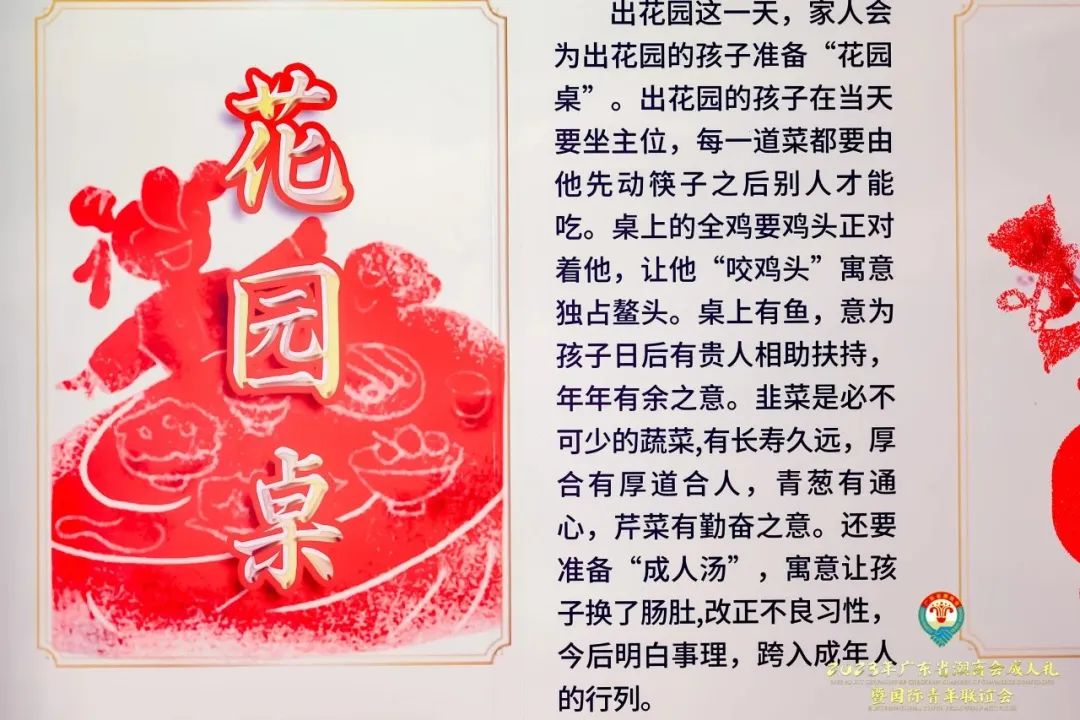 花园桌
出花园这一天，家人会
为出花园的孩子准备“花园
桌”。出花园的孩子在当天
要坐主位，每一道菜都要由
他先动筷子之后别人才能
吃。桌上的全鸡要鸡头正对
着他，让他“咬鸡头”寓意
独占鳌头。桌上有鱼，意为
孩子日后有贵人相助扶持，
年年有余之意。韭菜是必不
可少的蔬菜,有长寿久远，厚
合有厚道合人，青葱有通
心，芹菜有勤奋之意。还要
准备“成人汤”，寓意让孩
子换了肠肚,改正不良习性，
今后明白事理，跨入成年人
的行列。
2023年广东省潮商会成人礼
暨国际青年联谊会